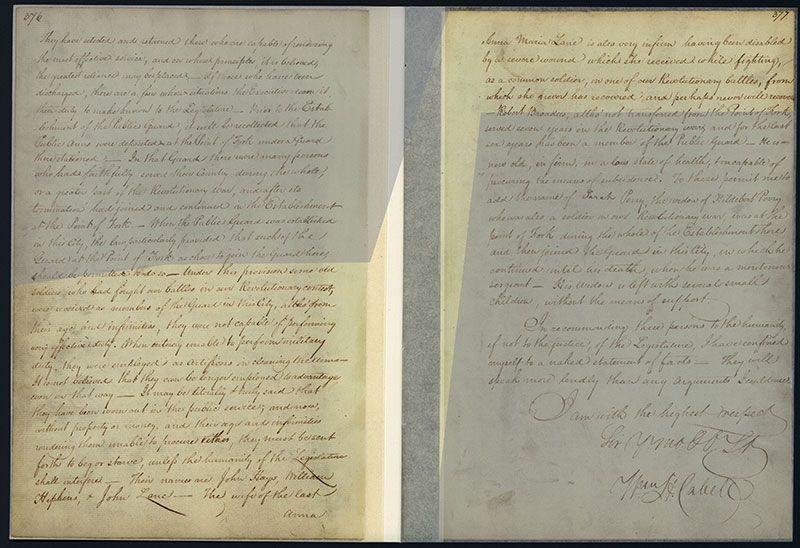 376
They have selected and retained those who are capable of rendering
the most effective service, and on whose principles it is believed,
the greatest reliance may be placed — Of those who have been
discharged, there are a few whose situations the Executive deem it
their duty to make known to the Legislature — Prior to the Estab
lishment of the Public Guard, it will be recollected that the
Public Arms were deposited at the Point of Fork under a Guard
there stationed — In that Guard there were many persons
who had faithfully served their Country during the whole,
or a greater part of the Revolutionary War, and after its
termination had joined and continued in the Establishment
at the Point of Fork — When the Public Guard was established
in this City, the law particularly provided that such of the
Guard at the Point of Fork as chose to join the Guard here,
should be permitted to do so — Under this provision some old
soldiers, who had fought our battles in our Revolutionary contest,
were received as members of the Guard in this City, altho' from
their age and infirmities, they were not capable of performing
very effective duty. When entirely unable to perform military
duty, they were employed as artificers in cleaning the arms —
It is not believed that they can be longer employed to advantage
even in that way — It may be literally & truly said that
they have been worn out in the public service; and now,
without property or money, and their age and infirmities
rendering them unable to procure either, they must be sent
forth to beg or starve, unless the humanity of the Legislature
shall interpose — Their names are John Hays, William
Hephins, & John Lane — The wife of the last
Anna
377
Anna Maria Lane is also very infirm, having been disabled
by a severe wound which she received while fighting,
as a common soldier, in one of our Revolutionary battles, from
which she never has recovered, and perhaps never will recover
Robert Broaders, altho' not transferred from the Point of Fork,
served seven years in the Revolutionary war, and for the last
six years has been a member of the Public Guard — He is
now old, infirm, in a low state of health, & incapable of
procuring the means of subsistence. To these permit me to
add the name of Sarah Perry, the widow of Hildebert Perry
who was also a soldier in our Revolutionary war, was at the
Point of Fork during the whole of the Establishment there
and then joined the Guard in this City, in which he
continued until his death, when he was a meritorious
sergeant — His widow is left with several small
children, without the means of support —
In recommending these persons to the humanity,
if not to the justice, of the Legislature, I have confined
myself to a naked statement of facts — They will
speak more loudly than any arguments I could use
I am with the highest respect
Sir Yr mo Ob St
Wm H. Cabell